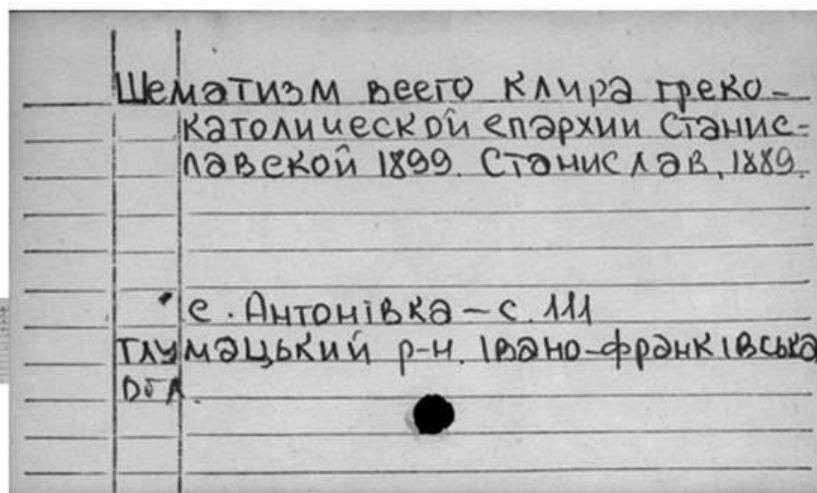 Шематизм всего клира греко-
католической епархии Станис-
лавской 1899. Станислав, 1889.
с. Антонівка – с. 111
Тлумацький р-н. Івано-франківська
обл.